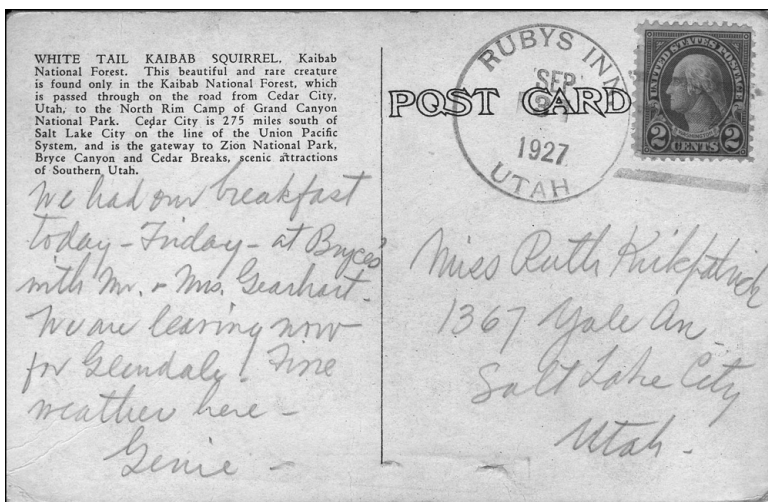 WHITE TAIL KAIBAB SQUIRREL, Kaibab
National Forest. This beautiful and rare creature
is found only in the Kaibab National Forest, which
is passed through on the road from Cedar City,
Utah, to the North Rim Camp of Grand Canyon
National Park. Cedar City is 275 miles south of
Salt Lake City on the line of the Union Pacific
System, and is the gateway to Zion National Park,
Bryce Canyon and Cedar Breaks, scenic attractions
of Southern Utah.
We had our breakfast
today - Friday - at Bryce's
with Mr. & Mrs. Gearhart -
We are leaving now
for Glendale. Fine
weather here -
Genie -
POST CARD
RUBYS INN
SEP
1927
UTAH
UNITED STATES POSTAGE
WASHINGTON
2 CENTS 2
Miss Ruth Kirkpatrick
1367 Yale Av.
Salt Lake City
Utah -